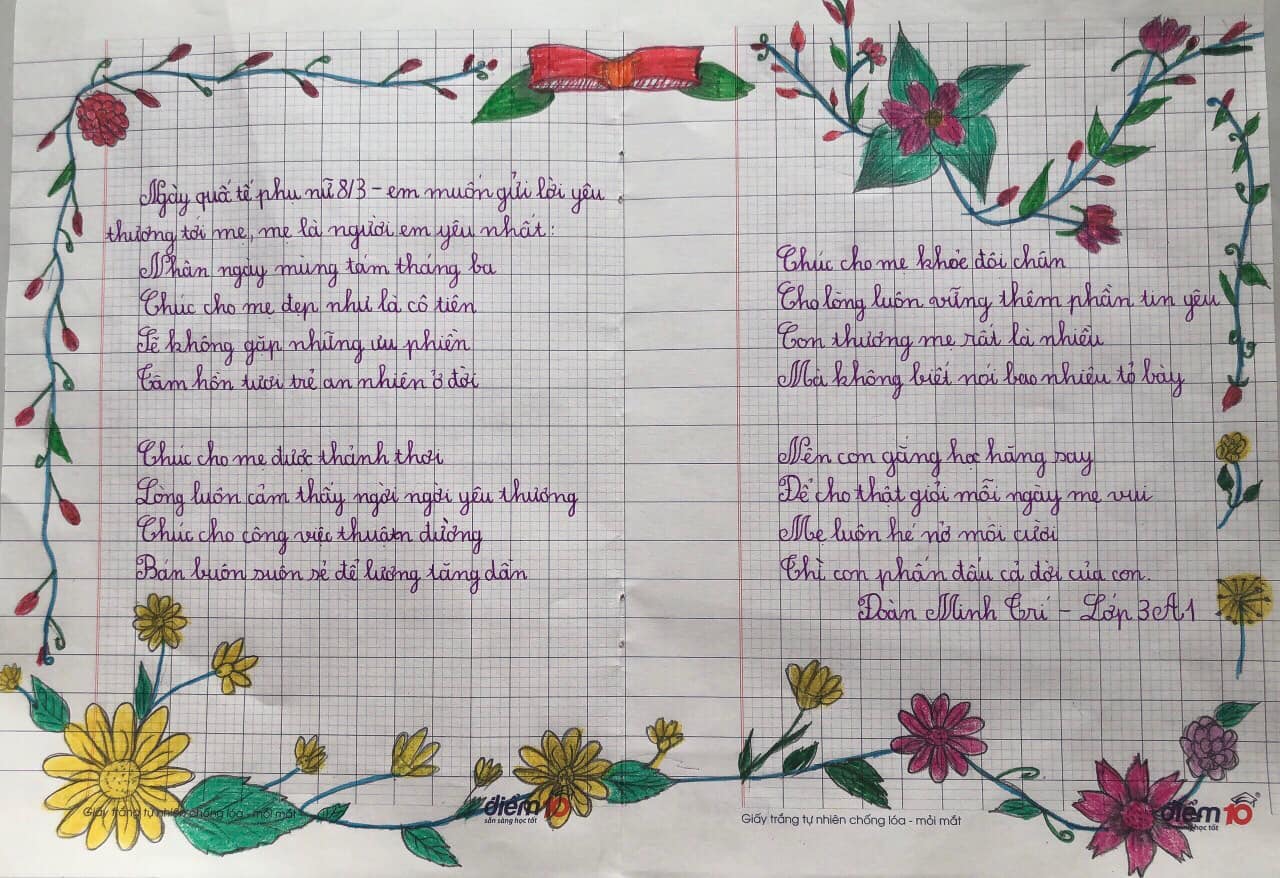 Ngày quấ tế phu nữ 8/3 - em muốn gửi lời yêu
thương tới mẹ, mẹ là người em yêu nhất:
Nhân ngày mùng tám tháng ba
Chúc cho mẹ đẹp như là cô tiên
Sẽ không gặp những ưu phiền
Tâm hồn tươi trẻ an nhiên ở đời
Chúc cho mẹ được thảnh thơi
Lòng luôn cảm thấy ngời ngời yêu thương
Chúc cho công việc thuậtn đường
Bán buôn suôn sẻ để lương tăng dần
Giấy trắng tự nhiên chống lóa - mỏi mắt
điểm 10
sẵn sàng học tốt
Chúc cho mẹ khỏe đôi chân
Cho lòng luôn vững thêm phần tin yêu
Con thương mẹ rất là nhiều
Mà không biết nói bao nhiêu tỏ bày
Nên con gắng học hăng say
Để cho thật giỏi mỗi ngày mẹ vui
Mẹ luôn hé nở môi cười
Thì con phấn đấu cả đời của con.
Đoàn Minh Trí - Lớp 3A1
Giấy trắng tự nhiên chống lóa - mỏi mắt
điểm 10
học tốt